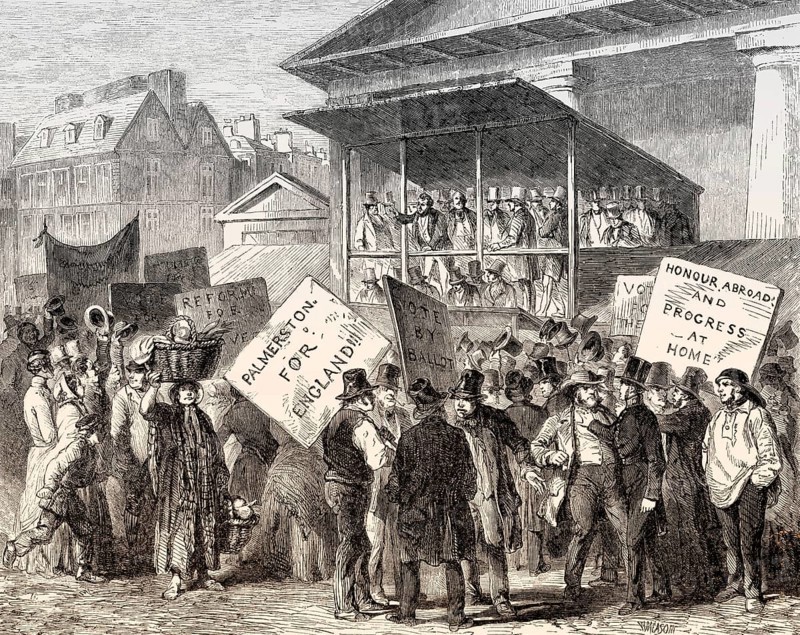 REFORM
FOR
PALMERSTON.
FOR
ENGLAND!!!
VOTE
BY
BALLOT
VO
FO
THE
HONOUR ABROAD.
AND
PROGRESS
AT
HOME